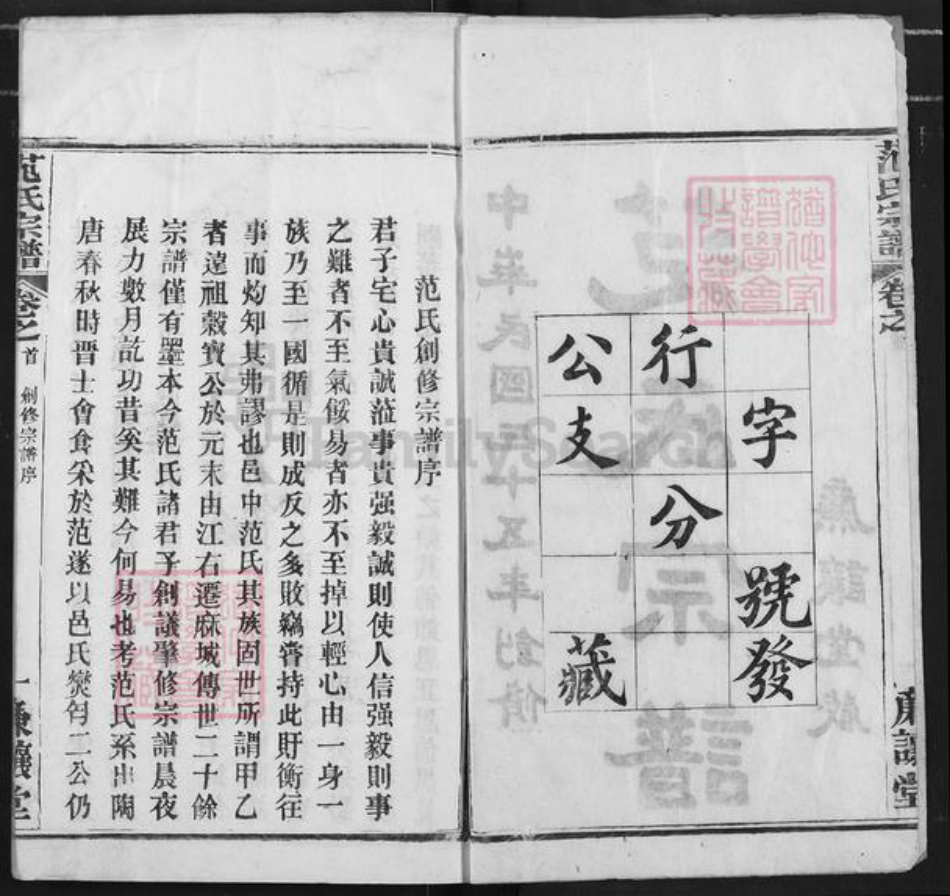 范氏宗譜
卷之
廉讓堂
字號發
行分
公支藏
范氏創修宗譜序
君子宅心貴誠蒞事貴强毅誠則使人信强毅則事
之難者不至氣餒易者亦不至掉以輕心由一身一
族乃至一國循是則成反之多敗竊嘗持此盱衡往
事而灼知其弗謬也邑中范氏其族固世所謂甲乙
者遠祖穀寶公於元末由江右遷麻城傳世二十餘
宗譜僅有墨本今范氏諸君子創議肇修宗譜晨夜
展力數月訖功昔奚其難今何易也考范氏系出陶
唐春秋時晋士會食采於范遂以邑氏爕匄二公仍
范氏宗譜
卷之首
創修宗譜序
一
廉讓堂
中華民國三十五年創修
范氏宗譜
廉讓堂藏
FamilySearch